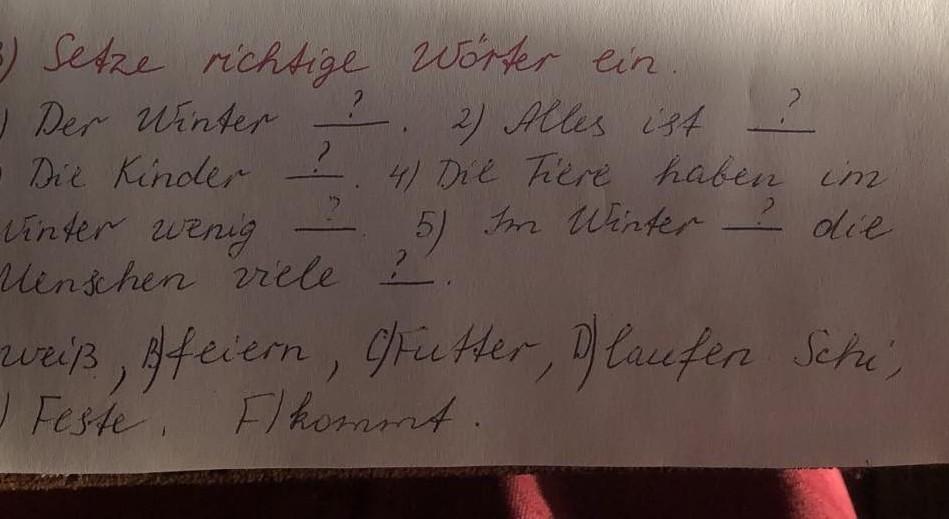 ) Setze richtige Wörter ein.
) Der Winter __?__. 2) Alles ist __?__
Die Kinder __?__. 4) Die Tiere haben im
Winter wenig __?__. 5) Im Winter __?__ die
Menschen viele __?__.
weiß, B) feiern, C) Futter, D) laufen Schi,
) Feste. F) kommt.